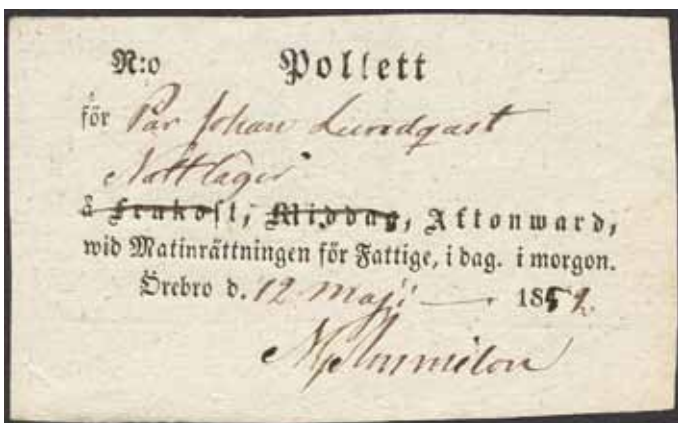 N:o Pollett
för Pär Johan Lundqast
Nattlager
å Frukost, Middag, Aftonward,
wid Matinrättningen för Fattige, i dag. i morgon.
Örebro d. 12 Maji 1852